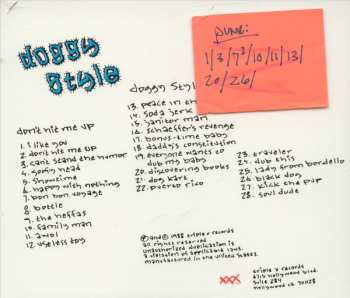 doggy
style
PUNK:
1/3/7?/10/11/13/
20/26/
don't hit me up
1. i like you
2. don't hit me up
3. can't stand the humor
4. goofy head
5. showtime
6. happy with nothing
7. bon bon voyage
8. bottle
9. the neffas
10. family man
11. awol
12. useless toy
doggy Styl
13. peace in th
14. soda jerk
15. janitor man
16. schaeffer's revenge
17. bonus-time baby
18. daddy's constitution
19. everyone wants to
dub my baby
20. discovering books
21. dog kart
22. puerto rico
23. traveler
24. dub this
25. lady from bordello
26. black dog
27. kick the pup
28. soul dude
℗and© 1988 triple x records
all rights reserved
unauthorized duplication is
a violation of applicable laws.
manufactured in the united states.
XXX
triple x records
6715 hollywood blvd.
suite 284
hollywood ca. 90028